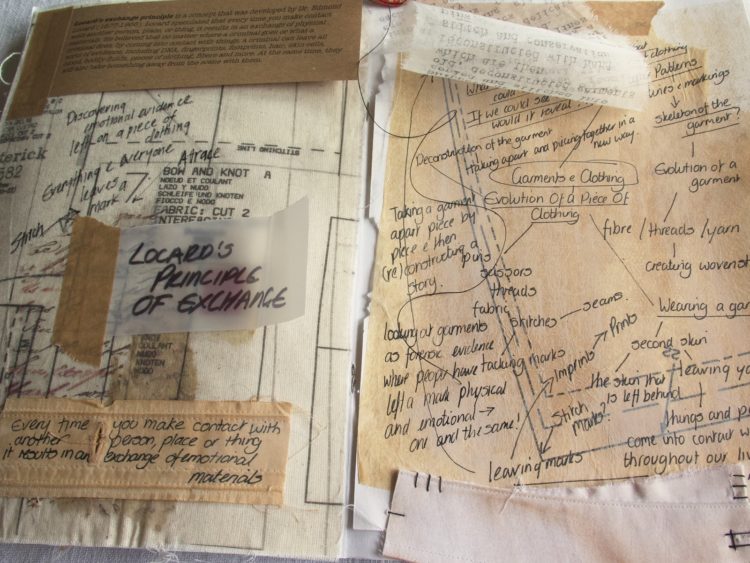 Locard's exchange principle is a concept that was developed by Dr. Edmond
Locard (1877-1966). Locard speculated that every time you make contact
with another person, place, or thing, it results in an exchange of physical
materials. He believed that no matter where a criminal goes or what a
criminal does, by coming into contact with things, a criminal can leave all
sorts of evidence, including DNA, fingerprints, footprints, hair, skin cells,
blood, bodily fluids, pieces of clothing, fibers and more. At the same time, they
will also take something away from the scene with them.
Discovering
emotional evidence
left on a piece of
clothing
STITCHING LINE
Everything e everyone
leaves a
mark
A trace
Stitch
BOW AND KNOT A
NOEUD ET COULANT
LAZO Y NUDO
SCHLEIFE UND KNOTEN
FIOCCO E NODO
FABRIC: CUT 2
LOCARD'S
PRINCIPLE
OF EXCHANGE
KNOT
COULANT
NUDO
KNOTEN
NODO
Every time you make contact with
another person, place or thing
it results in an exchange of emotional
materials
stitch and conservation
reconstructed with hand
which are then
old, deconstructed garments
clothing
Patterns
Lines e markings
could
If we could see
would it reveal?
skeleton of the
garment?
Deconstruction of the garment
taking apart and piecing together in a
new way.
Garments e Clothing
Evolution Of a Piece Of
Clothing
Evolution of a
garment
Taking a garment
apart piece by
piece e then
(re)constructing a
story.
fibre / threads / yarn
creating woven
pins
scissors
threads
fabric
stitches
seams.
tacking marks
Wearing a
second skin
looking at garments
as forensic evidence
where people have
left a mark physical
and emotional →
one and the same!
Imprints
Prints
the skin that
is left behind
Stitch
marks?
leaving marks
leaving
things and
come into contact
throughout our